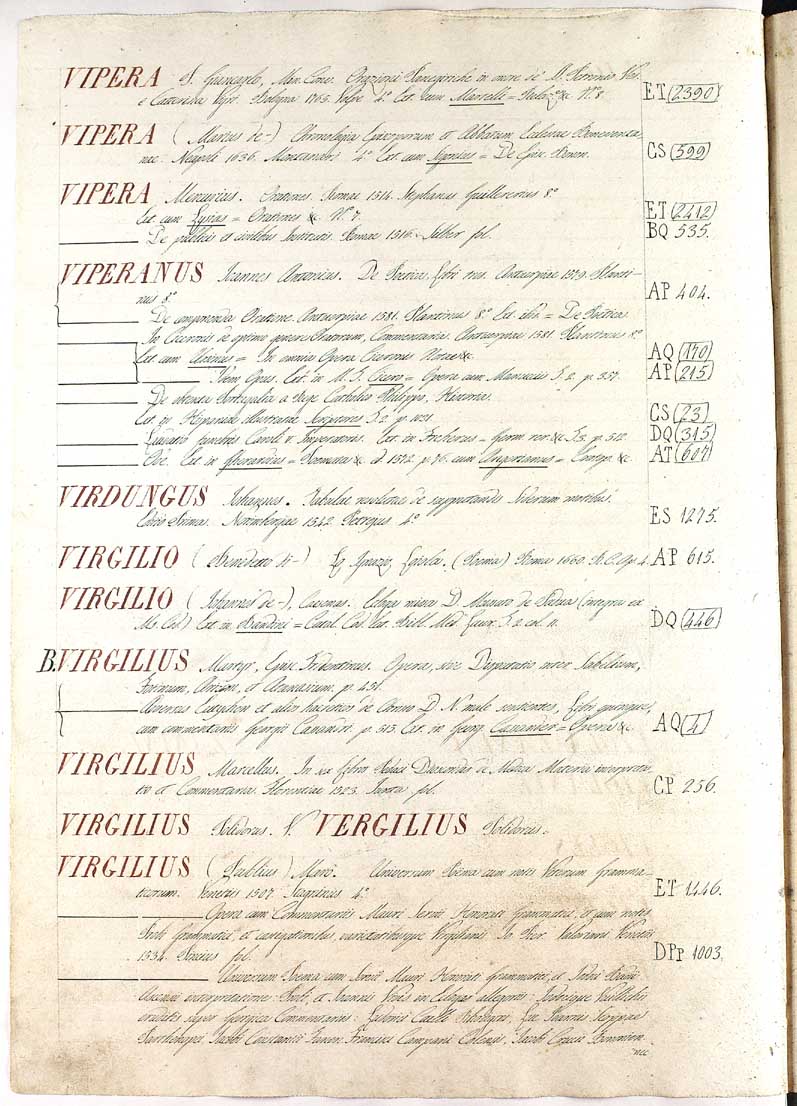 VIPERA S. Giuncarlo, Min. Conv. Orazioni Panegiriche in onore di
e Catterina Bologna 1763. Volpe 4.° Est. cum Marcelli = &c. N.° 8. ET (2390)
VIPERA (Marius de-) Chronologia Episcoporum et Abbatum Ecclesiae Beneventa-
nae. Neapoli 1636. 4.° Est. cum = De Episc. Benev. CS (599)
VIPERA Mercurius. Orationes. Romae 1514. Stephanus Guillereti 8.°
Est cum Lysias = Orationes &c. N.° 7. ET (2412)
De publicis et civilibus Romae 1516. Silber fol. BQ 535.
VIPERANUS Ioannes Antonius. De Poetica Libri tres. Antuerpiae 1579. Planti-
nus 8.° AP 404.
De componenda Oratione. Antuerpiae 1581. Plantinus 8.° Est. = De Poetica
In Ciceronis de optimo genere Oratorum, Commentarius. Antuerpiae 1581. Plantinus 8.°
Est cum Ursinus = In omnia Opera Ciceronis Notae &c. AQ (170)
Idem Opus. Est. in M. T. Cicero = Opera cum Manucius T. 2. p. 337. AP (215)
De obtenta Portugallia a Rege Catholico Philippo, Historia.
Est in Hispaniae Illustratae Scriptores T. 2. p. CS (23)
funebris Caroli V. Imperatoris. Est in Freherus = Germ. rer. &c. T. 3. p. 512. DQ (315)
Est in = Poemata &c. 1572. p. 76. cum &c. AT (607)
VIRDUNGUS Iohannes. Tabulae resolutae de supputandis Siderum motibus.
Editio Prima. Norimbergae 1542. Petreius 4.° ES 1275.
VIRGILIO (Benedetto di-) Ignazio Lojola. (Poema) Roma 1660. 4. AP 615.
VIRGILIO (Iohannis de-), Caesenas. Ecloga missa D. Mussato de Padua (integra ex
M. Cod.) Est in Bandini = Catal. Cod. Lat. Bibl. Med. Laur. T. 2. col. 11. DQ (446)
B. VIRGILIUS Martyr, Episc. Tridentinus. Opera, sive Disputatio inter Sabellium,
Photinum, Arium, et Athanasium. p. 451.
Adversus Eutychen et alios haereticos de Christo D. N. male sentientes, Libri quinque,
cum commentariis Georgii Cassandri. p. 513. Est. in Georg. Cassander = Opera &c. AQ (4)
VIRGILIUS Marcellus. In sex Libros Pedacii Dioscoridis de Medica Materia interpretatio
et Commentaria. Florentiae 1523. Iuntae fol. CP 256.
VIRGILIUS Polidorus. V. VERGILIUS Polidorus.
VIRGILIUS (Publius) Maro. Universum Poema cum notis Veterum Gramma-
ticorum. Venetiis 1507. 4.° ET 1446.
Opera cum Commentariis Mauri Servii Honorati Grammatici, et cum notis
Probi Grammatici, et castigationibus varietatibusque Virgilianis Io. Pier. Valeriani. Venetiis
1534. fol. DPp 1003.
Universum Poema cum Servii Mauri Honorati Grammatici, et Iodoci Badii
Ascensii interpretatione: Probi, et Ioannis Vivis in Eclogas allegoriis: Iodocique Willichii
eruditis super Georgica Commentariis: Ludovici Caelii Rhodigini, Io. Baptistae
Parthenopei, Iacobi Constantii Fanen. Francisci Campani Colensis, Iacobi Crucii Bononien-